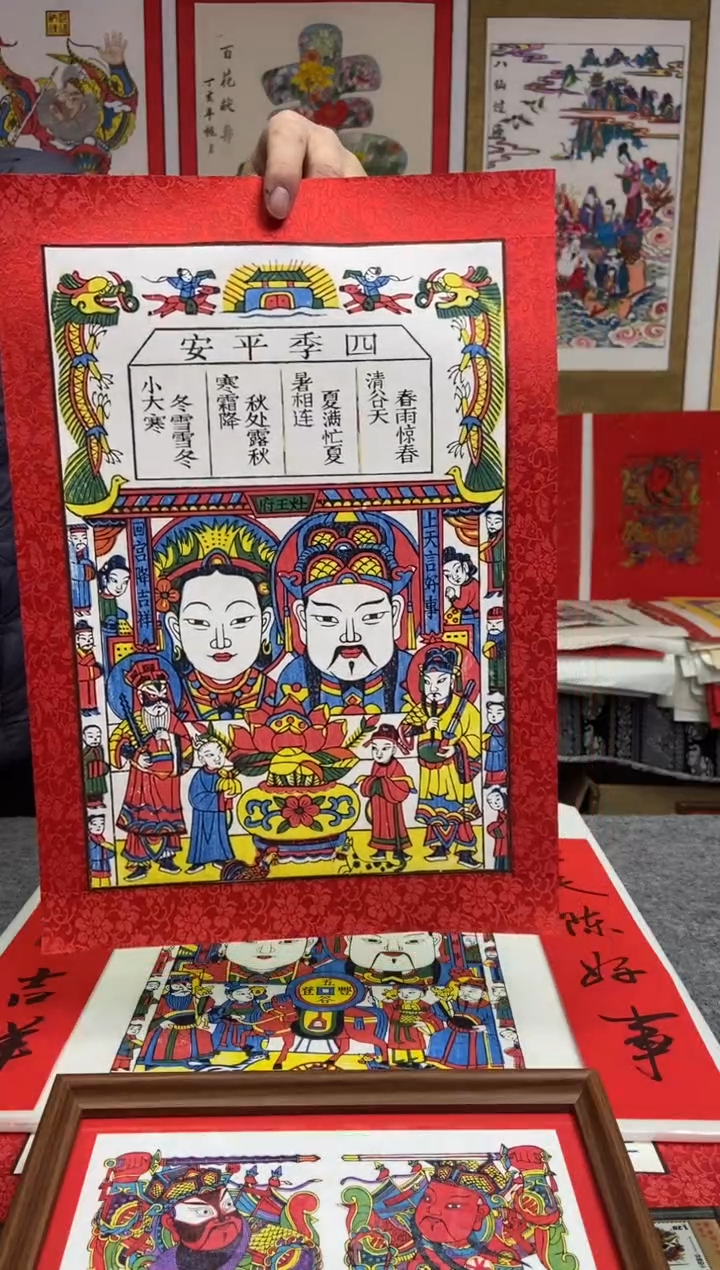 百花
八仙
四季平安
春雨惊春
清谷天
夏满忙夏
暑相连
秋处露秋
寒霜降
冬雪雪冬
小大寒
灶王府
上天言好事
回宫降吉祥
陈好事
吉祥